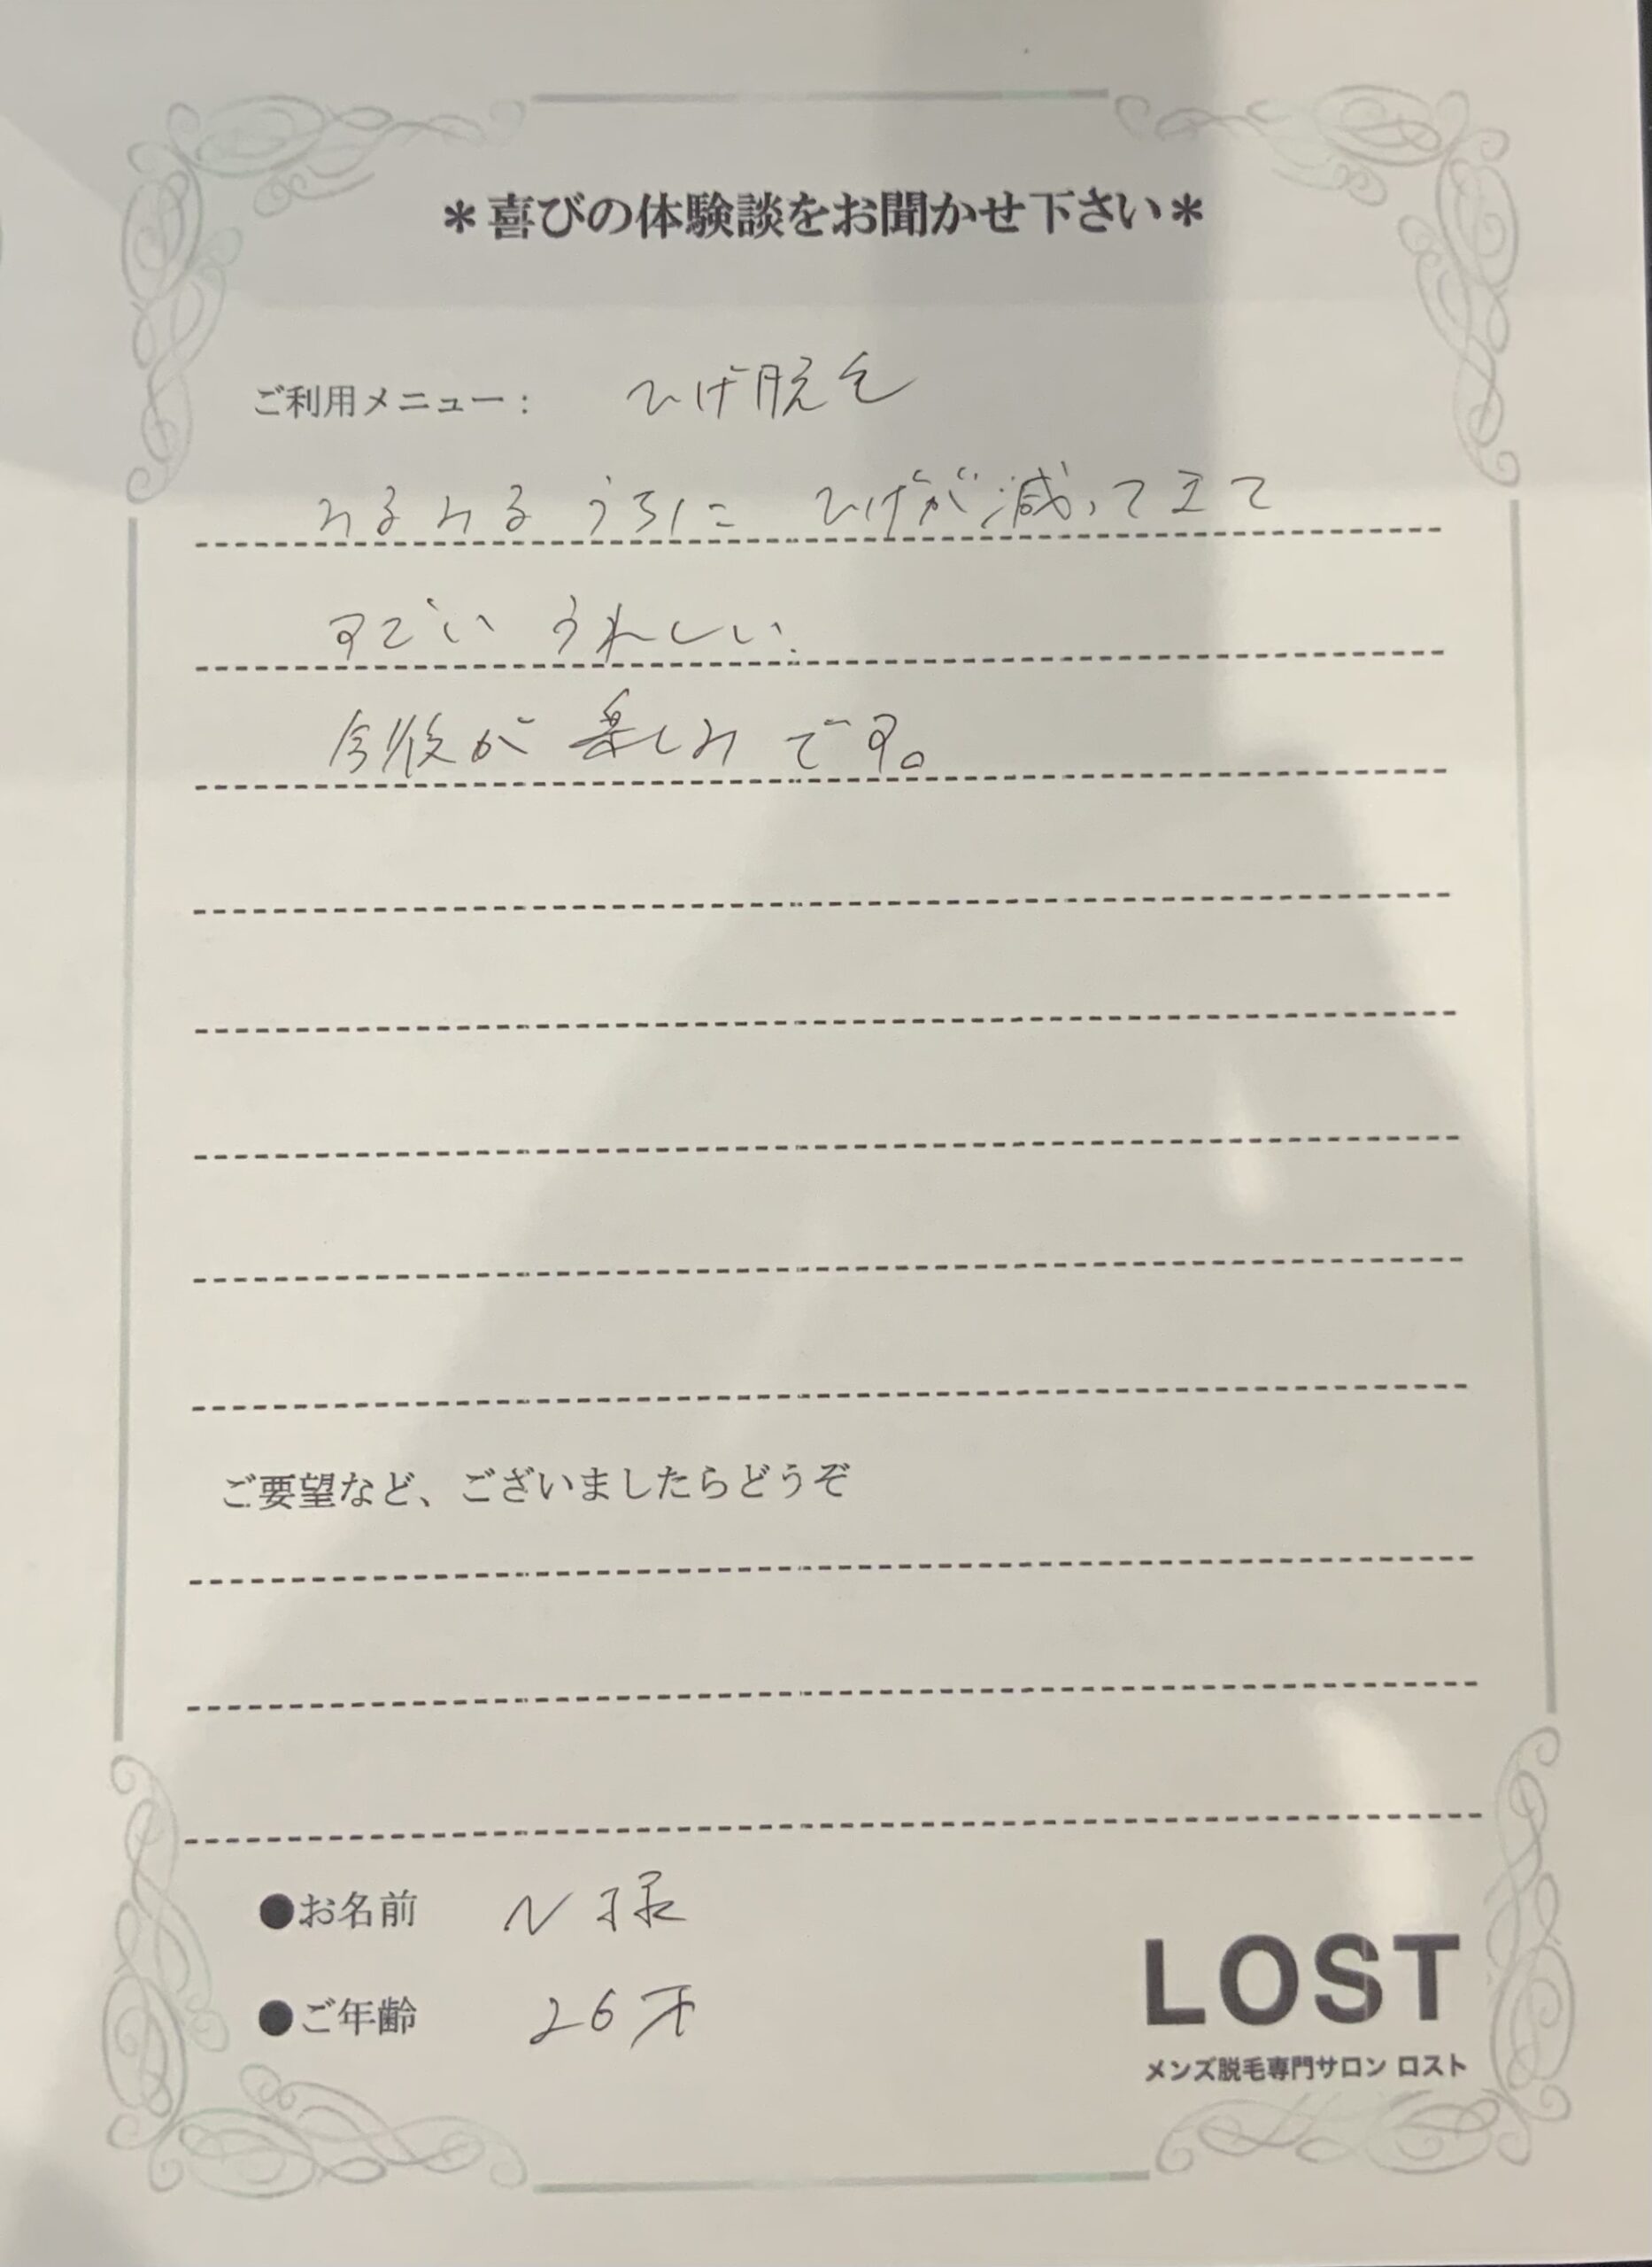 ＊喜びの体験談をお聞かせ下さい＊
ご利用メニュー： ひげ脱毛
みるみるうちに ひげが減ってきて
すごい うれしい。
今後が 楽しみです。
ご要望など、ございましたらどうぞ
●お名前 N様
●ご年齢 26才
LOST
メンズ脱毛専門サロン ロスト